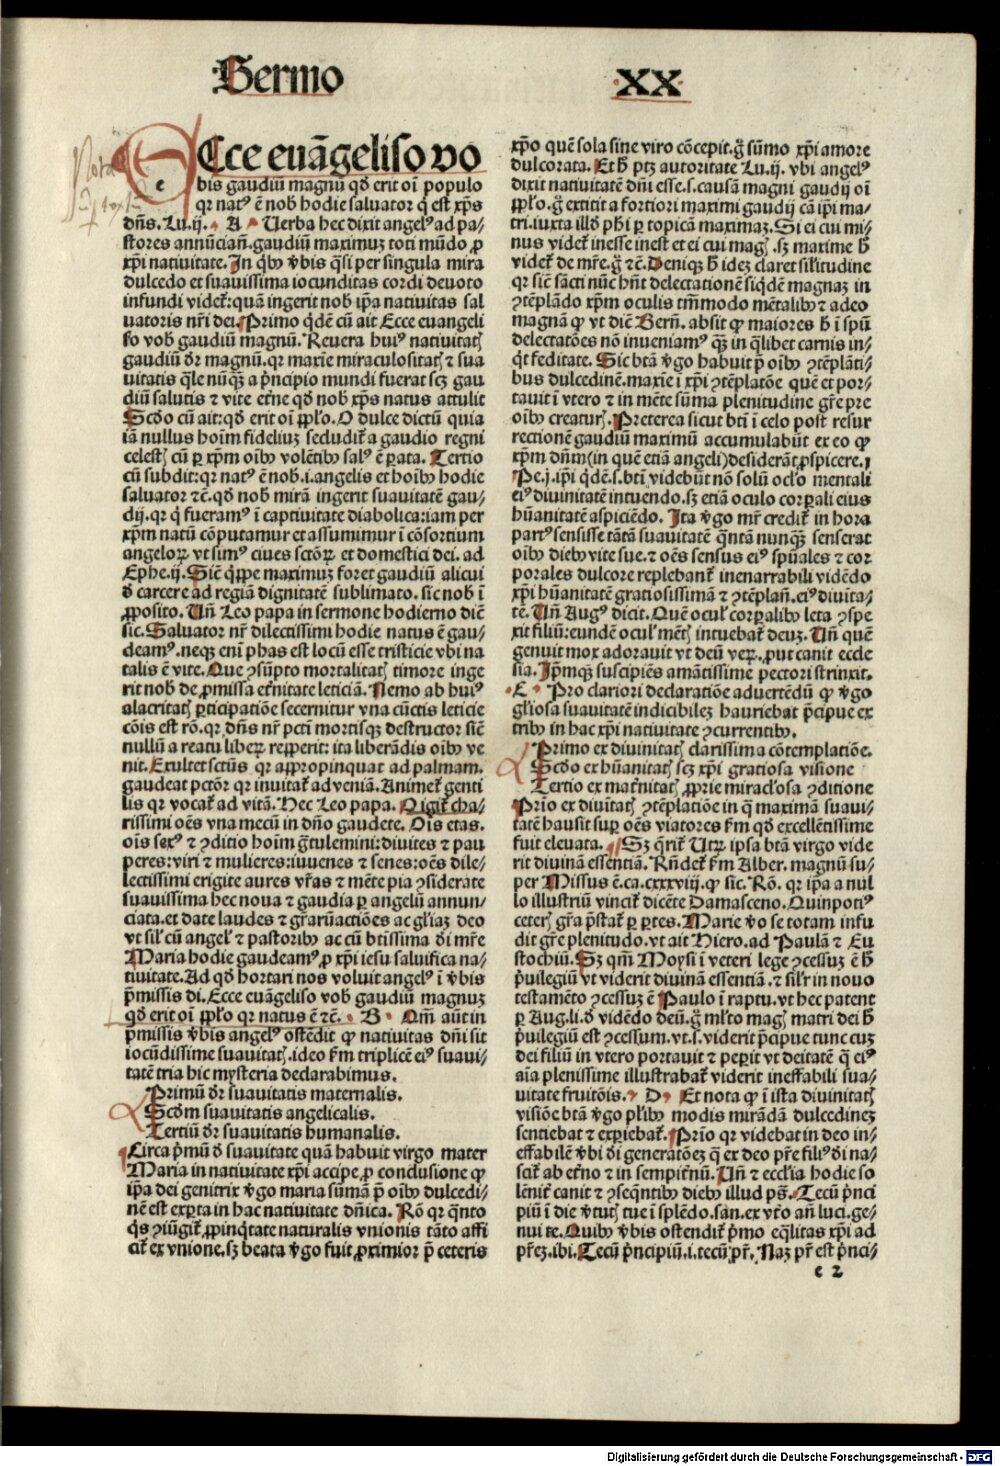 Sermo XX
Ecce euāgeliso vo
bis gaudiū magnū qd̓ erit oī populo
qr natꝰ ē nob hodie saluator q̇ est xp̄s
dn̄s. Lu.ij. A Uerba hec dixit angelꝰ ad pa-
stores annūciañ.gaudiū maximuꝫ toti mūdo ꝓ
xp̄i natiuitate. In qͥbꝰ v̓bis qͣsi per singula mira
dulcedo et suauissima iocunditas cordi deuoto
infundi videt̃: quā ingerit nob ip̄a natiuitas sal
uatoris nr̄i dei. Primo qͥdē cū ait Ecce euangeli
so vob gaudiū magnū. Reuera huiꝰ natiuitatꝭ
gaudiū dr̄ magnū. qr maxīe miraculositatꝭ ⁊ sua
uitatis qͣle nūqͣꝫ a pͥncipio mundi fuerat scꝫ gau
diū salutis ⁊ vite et̓ne qd̓ nob xp̄s natus attulit
Scd̓o cū ait: qd̓ erit oī pp̄lo. O dulce dictū quia
iā nullus hoīm fideliuꝫ secludit̃ a gaudio regni
celestꝭ cū ꝑ xp̄m oībꝰ volētibꝰ salꝰ ē ꝑata. Tertio
cū subdit: qr natꝰ ē nob.i.angelis et hoībꝰ hodie
saluator ⁊c̄. qd̓ nob mirā ingerit suauitatē gau-
dij. qr q̇ fueramꝰ ī captiuitate diabolica: iam per
xp̄m natū cōputamur et assumimur ī cōsortium
angeloꝝ vt simꝰ ciues sctōꝝ et domestici dei. ad
Ephe.ij. Sic̄ qͥppe maximuꝫ foret gaudiū alicui
d̓ carcere ad regiā dignitatē sublimato. sic nob ī
ꝓposito. Un̄ Leo papa in sermone hodierno dic̄
sic. Saluator nr̄ dilectissimi hodie natus ē gau-
deamꝰ. neqꝫ enī phas est locū esse tristicie vbi na
talis ē vite. Que ꝯsūpto mortalitatꝭ timore inge
rit nob de ꝓmissa et̓nitate leticiā. Nemo ab huiꝰ
alacritatꝭ ꝑticipatiōe secernitur vna cūctis leticie
cōis est rō. qr dn̄s nr̄ pctī mortisqꝫ destructor sic̄
nullū a reatu liberꝫ repperit: ita liberādis oībꝰ ve
nit. Exultet sctūs qr appropinquat ad palmam.
gaudeat pctōr qr inuitat̃ ad veniā. Animet̃ genti
lis qr vocat̃ ad vitā. Hec Leo papa. Qͥ igit̃ cha-
rissimi oēs vna mecū in dn̄o gaudete. Oīs etas.
oīs sexꝰ ⁊ ꝯditio hoīm gͣtulemini: diuites ⁊ pau
peres: viri ⁊ mulieres: iuuenes ⁊ senes: oēs dile-
lectissimi erigite aures vr̄as ⁊ mēte pia ꝯsiderate
suauissima hec noua ⁊ gaudia ꝑ angelū annun-
ciata. et date laudes ⁊ gr̄aꝝ actiōes ac gl̄iaꝫ deo
vt sil̄ cū angel̓ ⁊ pastoribꝰ ac cū btīssima d̓i mr̄e
Maria hodie gaudeamꝰ ꝓ xp̄i iesu saluifica na-
tiuitate. Ad qd̓ hortari nos voluit angelꝰ ī v̓bis
p̄missis di. Ecce euāgeliso vob gaudiū magnuꝫ
qd̓ erit oī pp̄lo qr natus ē ⁊c̄. B Qm̄ aūt in
p̄missis v̓bis angelꝰ ostēdit ꝙ natiuitas dn̄i sit
iocūdissime suauitatꝭ. ideo ẜm triplicē eiꝰ suaui-
tatē tria hic mysteria declarabimus.
Primū dr̄ suauitatis maternalis.
Scd̓m suauitatis angelicalis.
Tertiū dr̄ suauitatis humanalis.
Circa pͥmū d̓ suauitate quā habuit virgo mater
Maria in natiuitate xp̄i accipe ꝓ conclusione ꝙ
ip̄a dei genitrix v̓go maria sūmā p̄ oībꝰ dulcedi-
nē est exꝑta in hac natiuitate dn̄ica. Rō qr qͣnto
qͥs ꝯiūgit̃ ꝓpinqͥtate naturalis vnionis tāto affi
cit̃ ex vnione. sꝫ beata v̓go fuit ꝓximior p̄ ceteris
xp̄o quē sola sine viro cōcepit. gͦ sūmo xp̄i amore
dulcorata. Et h̓ ptꝫ autoritate Lu.ij. vbi angelꝰ
dixit natiuitatē dn̄i esse.s.causā magni gaudij oī
pp̄lo. gͦ extitit a fortiori maximi gaudij cā ip̄i ma-
tri. iuxta illd̓ ph̓i ꝑ topicā maximaꝫ. Si ei cui mi-
nus videt̃ inesse inest et ei cui magꝭ. sꝫ maxime h̓
videt̃ de mr̄e. gͦ ⁊c̄. Deniqꝫ h̓ ideꝫ claret sil̓itudine
qr sic̄ sācti nūc hn̄t delectationē siqͥdē magnaꝫ in
ꝯtēplādo xp̄m oculis tm̄modo mētalibꝰ ⁊ adeo
magnā ꝙ vt dic̄ Bern̄. absit ꝙ maiores h̓ ī sp̄ū
delectatōes nō inueniamꝰ qͣꝫ in qͣlibet carnis in-
qͥt feditate. Sic btā v̓go habuit p̄ oībꝰ ꝯtēplāti-
bus dulcedinē. maxīe ī xp̄i ꝯtēplatōe quē et por-
tauit ī vtero ⁊ in mēte sūma plenitudine gr̄e pre
oībꝰ creaturꝭ. Preterea sicut btī ī celo post resur
rectionē gaudiū maximū accumulabūt ex eo ꝙ
xp̄m dn̄m (in quē etiā angeli) desiderāt ꝓspicere.j
Pe.j. ip̄i qͥdē.s.btī videbūt nō solū oclo̓ mentali
eiꝰ diuinitatē intuendo. sꝫ etiā oculo corꝑali eius
hūanitatē aspiciēdo. Ita v̓go mr̄ credit̃ in hora
partꝰ sensisse tātā suauitatē qͣntā nunqͣꝫ senserat
oībꝰ diebꝰ vite sue. ⁊ oēs sensus eiꝰ sp̄uales ⁊ cor
porales dulcore replebant̃ inenarrabili vidēdo
xp̄i hūanitatē gratiosissimā ⁊ ꝯtēplañ. eiꝰ diuita-
tē. Un̄ Augꝰ dicit. Quē ocul̓ corꝑalibꝰ leta ꝯspe
xit filiū: eundē ocul̓ mētꝭ intuebat̃ deuꝫ. Un̄ quē
genuit mox adorauit vt deū veꝝ. ꝓut canit eccle
sia. Ip̄mqꝫ suscipiēs amātissime pectori strinxit.
C Pro clariori declaratiōe aduertēdū ꝙ v̓go
gl̓iosa suauitatē indicibileꝫ hauriebat pͥncipue ex
tribꝰ in hac xp̄i natiuitate ꝯcurrentibꝰ.
Primo ex diuinitatꝭ clarissima cōtemplatiōe.
Scd̓o ex hūanitatꝭ scꝫ xp̄i gratiosa visione
Tertio ex mat̓nitatꝭ ꝓprie miracl̓osa ꝯditione
Prīo ex diuītatꝭ ꝯtēplatiōe in qͣ maximā suaui-
tatē hausit suꝑ oēs viatores ẜm qd̓ excellētissime
fuit eleuata. Sꝫ qͥrit̃ Utꝝ ipsa btā virgo vide
rit diuinā essentiā. Rn̄det̃ ẜm Alber. magnū su-
per Missus ē.ca.cxxxviij. ꝙ sic. Rō. qr ip̄a a nul
lo illustriū vincit̃ dicēte Damasceno. Quinpotiꝰ
ceterꝭ gr̄a p̄stat̃ ꝑ ꝑtes. Marie v̓o se totam infu
dit gr̄e plenitudo. vt ait Hiero. ad Paulā ⁊ Eu
stochiū. Sꝫ qm̄ Moysi ī veteri lege ꝯcessuꝫ ē h̓
pͥuilegiū vt viderit diuinā essentiā. ⁊ sil̓r in nouo
testamēto ꝯcessuꝫ ē Paulo ī raptu. vt hec patent
ꝑ Aug.li.d̓ vidēdo deū. gͦ ml̓to magꝭ matri dei h̓
pͥuilegiū est ꝯcessum. vt.s.viderit pͥncipue tunc cuꝫ
dei filiū in vtero portauit ⁊ peperit vt deitatē qͣ eiꝰ
aīa plenissime illustrabat̃ viderit ineffabili sua-
uitate fruitōis. D Et nota ꝙ ī ista diuinitatꝭ
visiōe btā v̓go pl̓ibꝰ modis mirādā dulcedineꝫ
sentiebat ⁊ exꝑiebat̃. Prīo qr videbat in deo in-
effabilē v̓bi d̓i generatōeꝫ qͣ ex deo pr̄e filiꝰ d̓i na-
scit̃ ab et̓no ⁊ in sempit̓nū. Un̄ ⁊ eccl̓ia hodie so
lēnit̃ canit ⁊ ꝯseqͣntibꝰ diebꝰ illud ps̄. Tecū pͥnci
piū ī die v̓tutꝭ tue ī splēdo. san. ex vt̓o añ luci. ge-
nui te. Quibꝰ v̓bis ostendit̃ pͥmo eqͣlitas xp̄i ad
pr̄eꝫ. ibi. Tecū pͥncipiū.i.tecū pr̄. Naꝫ pr̄ est pͥnci-
c 2
Digitalisierung gefördert durch die Deutsche Forschungsgemeinschaft - DFG